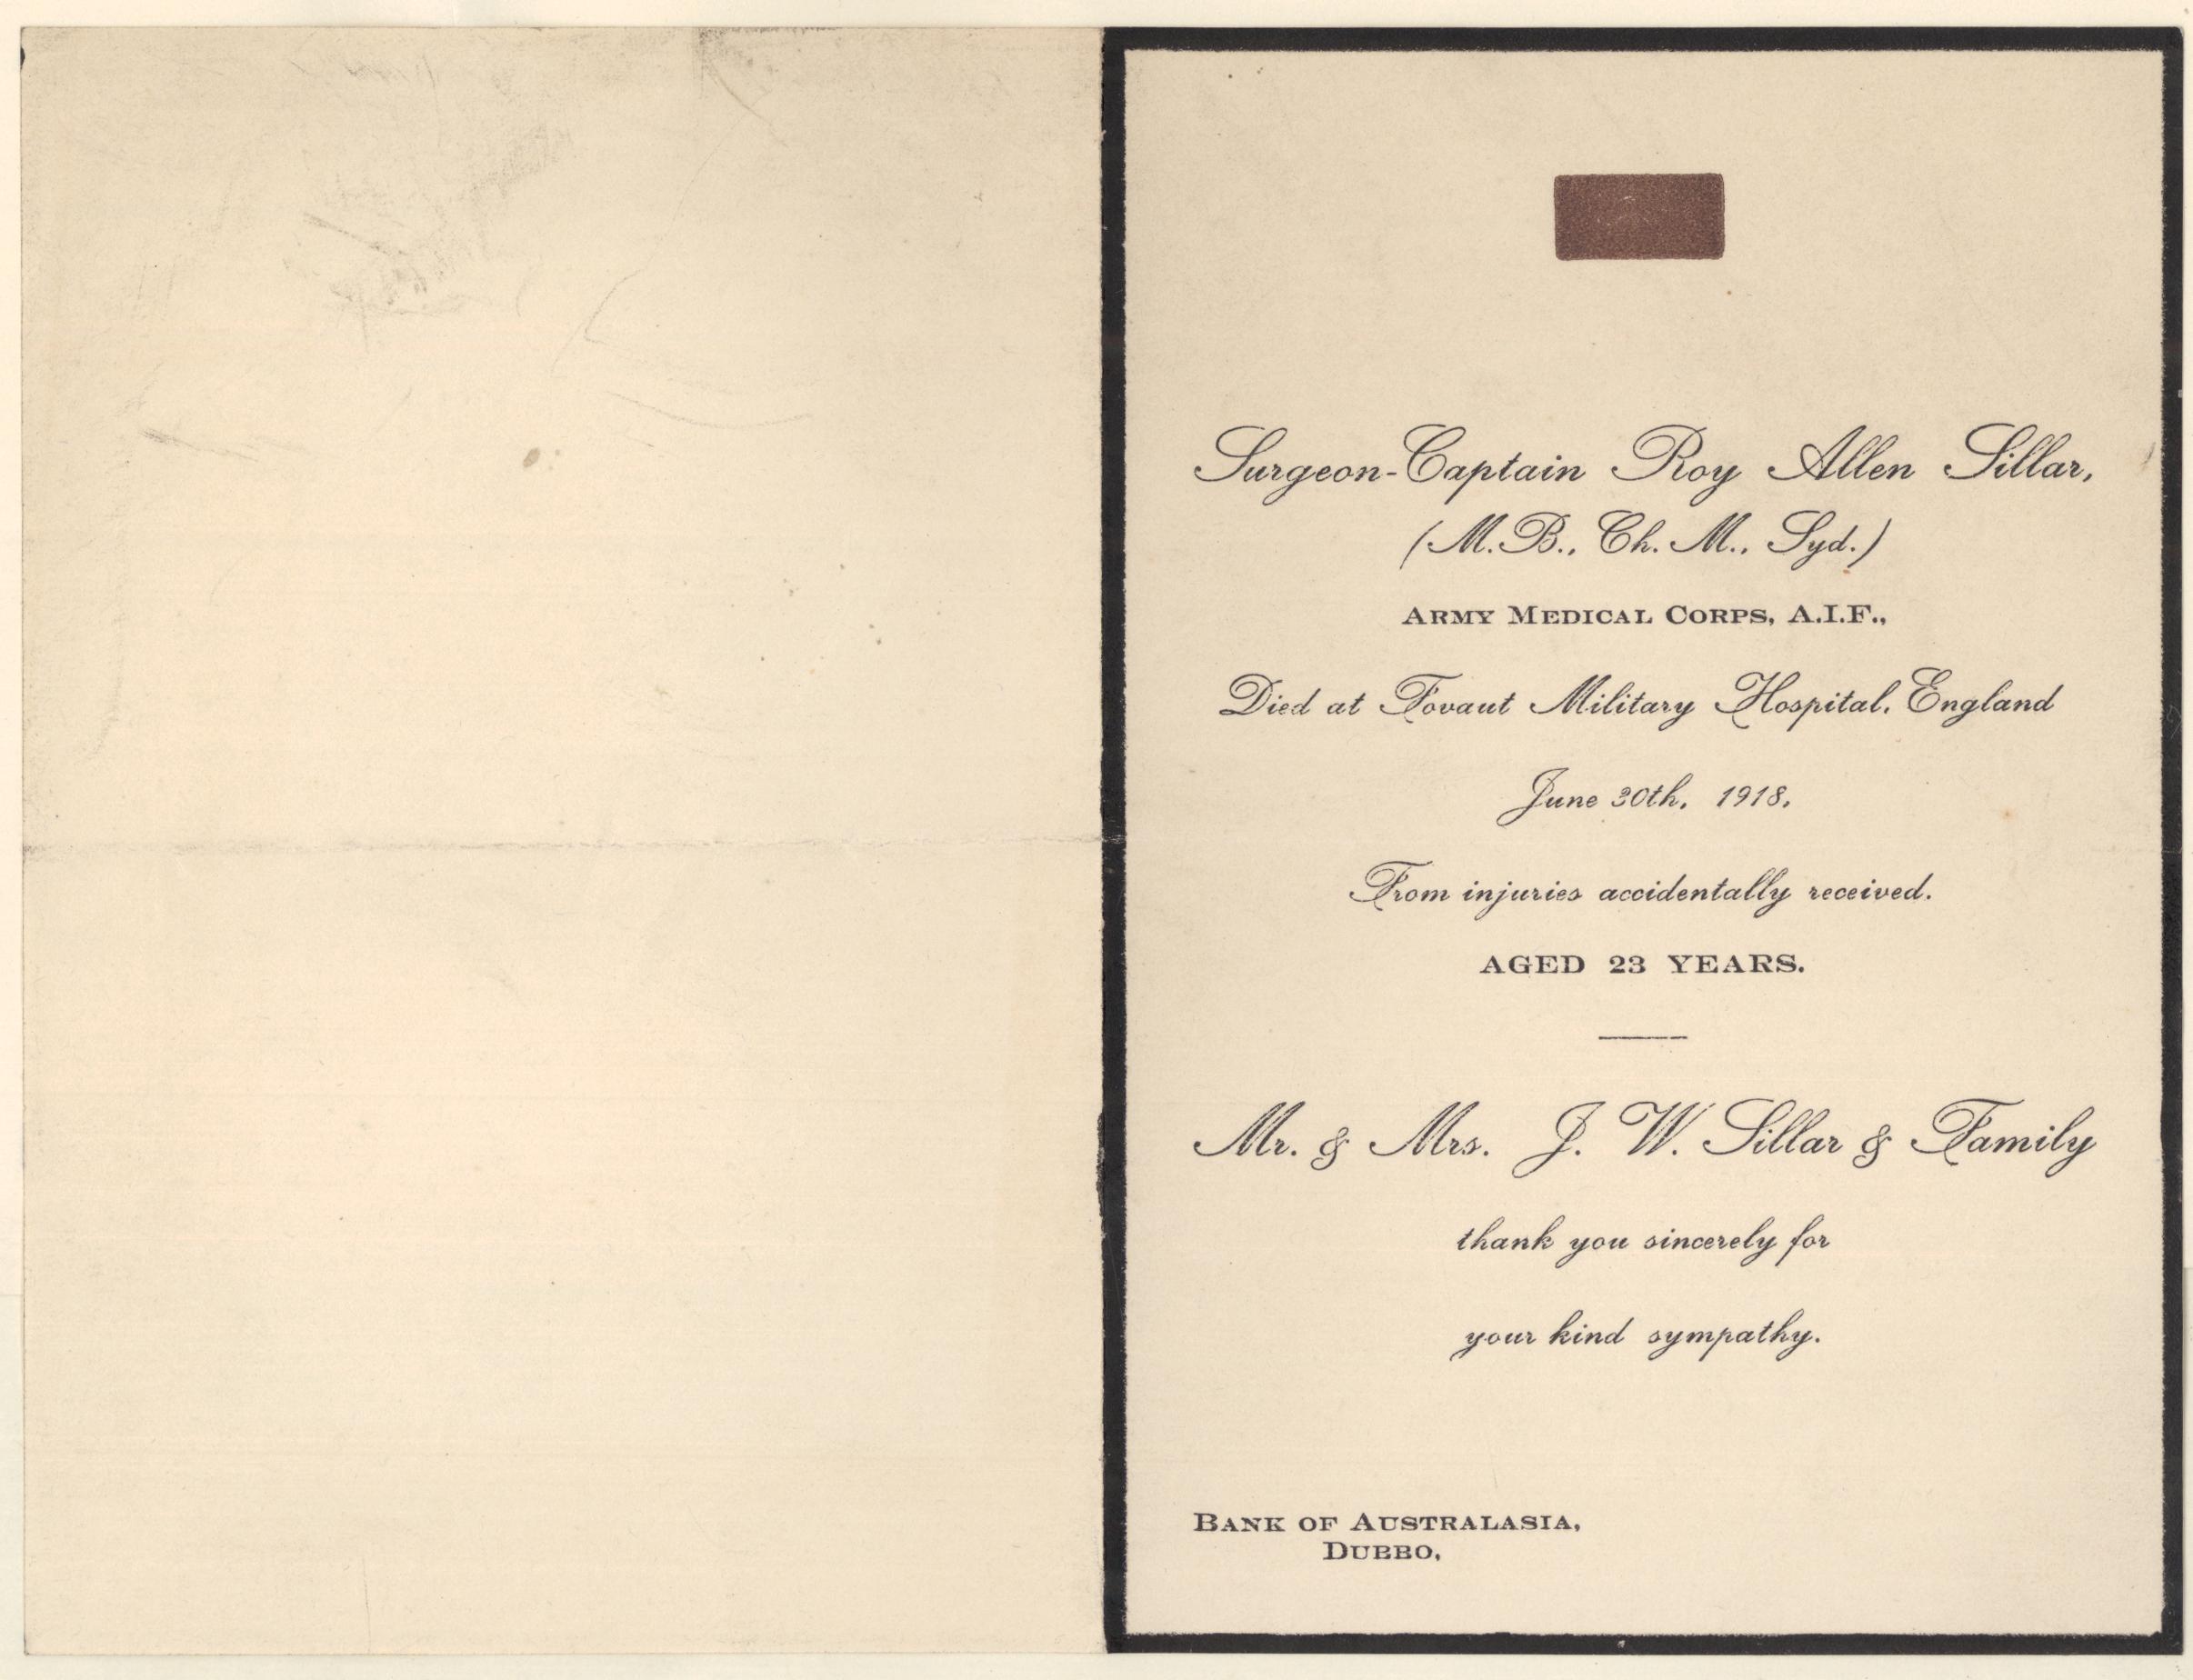 Surgeon-Captain Roy Allen Sillar,
(M.B., Ch. M., Syd.)
ARMY MEDICAL CORPS, A.I.F.,
Died at Fovaut Military Hospital, England
June 30th, 1918,
From injuries accidentally received.
AGED 23 YEARS.
Mr. & Mrs. J. W. Sillar & Family
thank you sincerely for
your kind sympathy.
BANK OF AUSTRALASIA,
DUBBO,